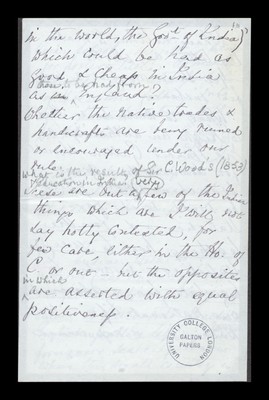 in the world, the Govt. of India)
which could be had as
good & cheap in India
as in England
Whether the native trades &
handicrafts are being ruined
or encouraged under our
rule
what is the results of Sir C. Wood's (1853)
Education
These are but a few of the
things which are
day hotly contested, for
few care, either in the Ho: of
C. or out - but the opposites
in which
are asserted with equal
positiveness.
UNIVERSITY COLLEGE LONDON
GALTON
PAPERS